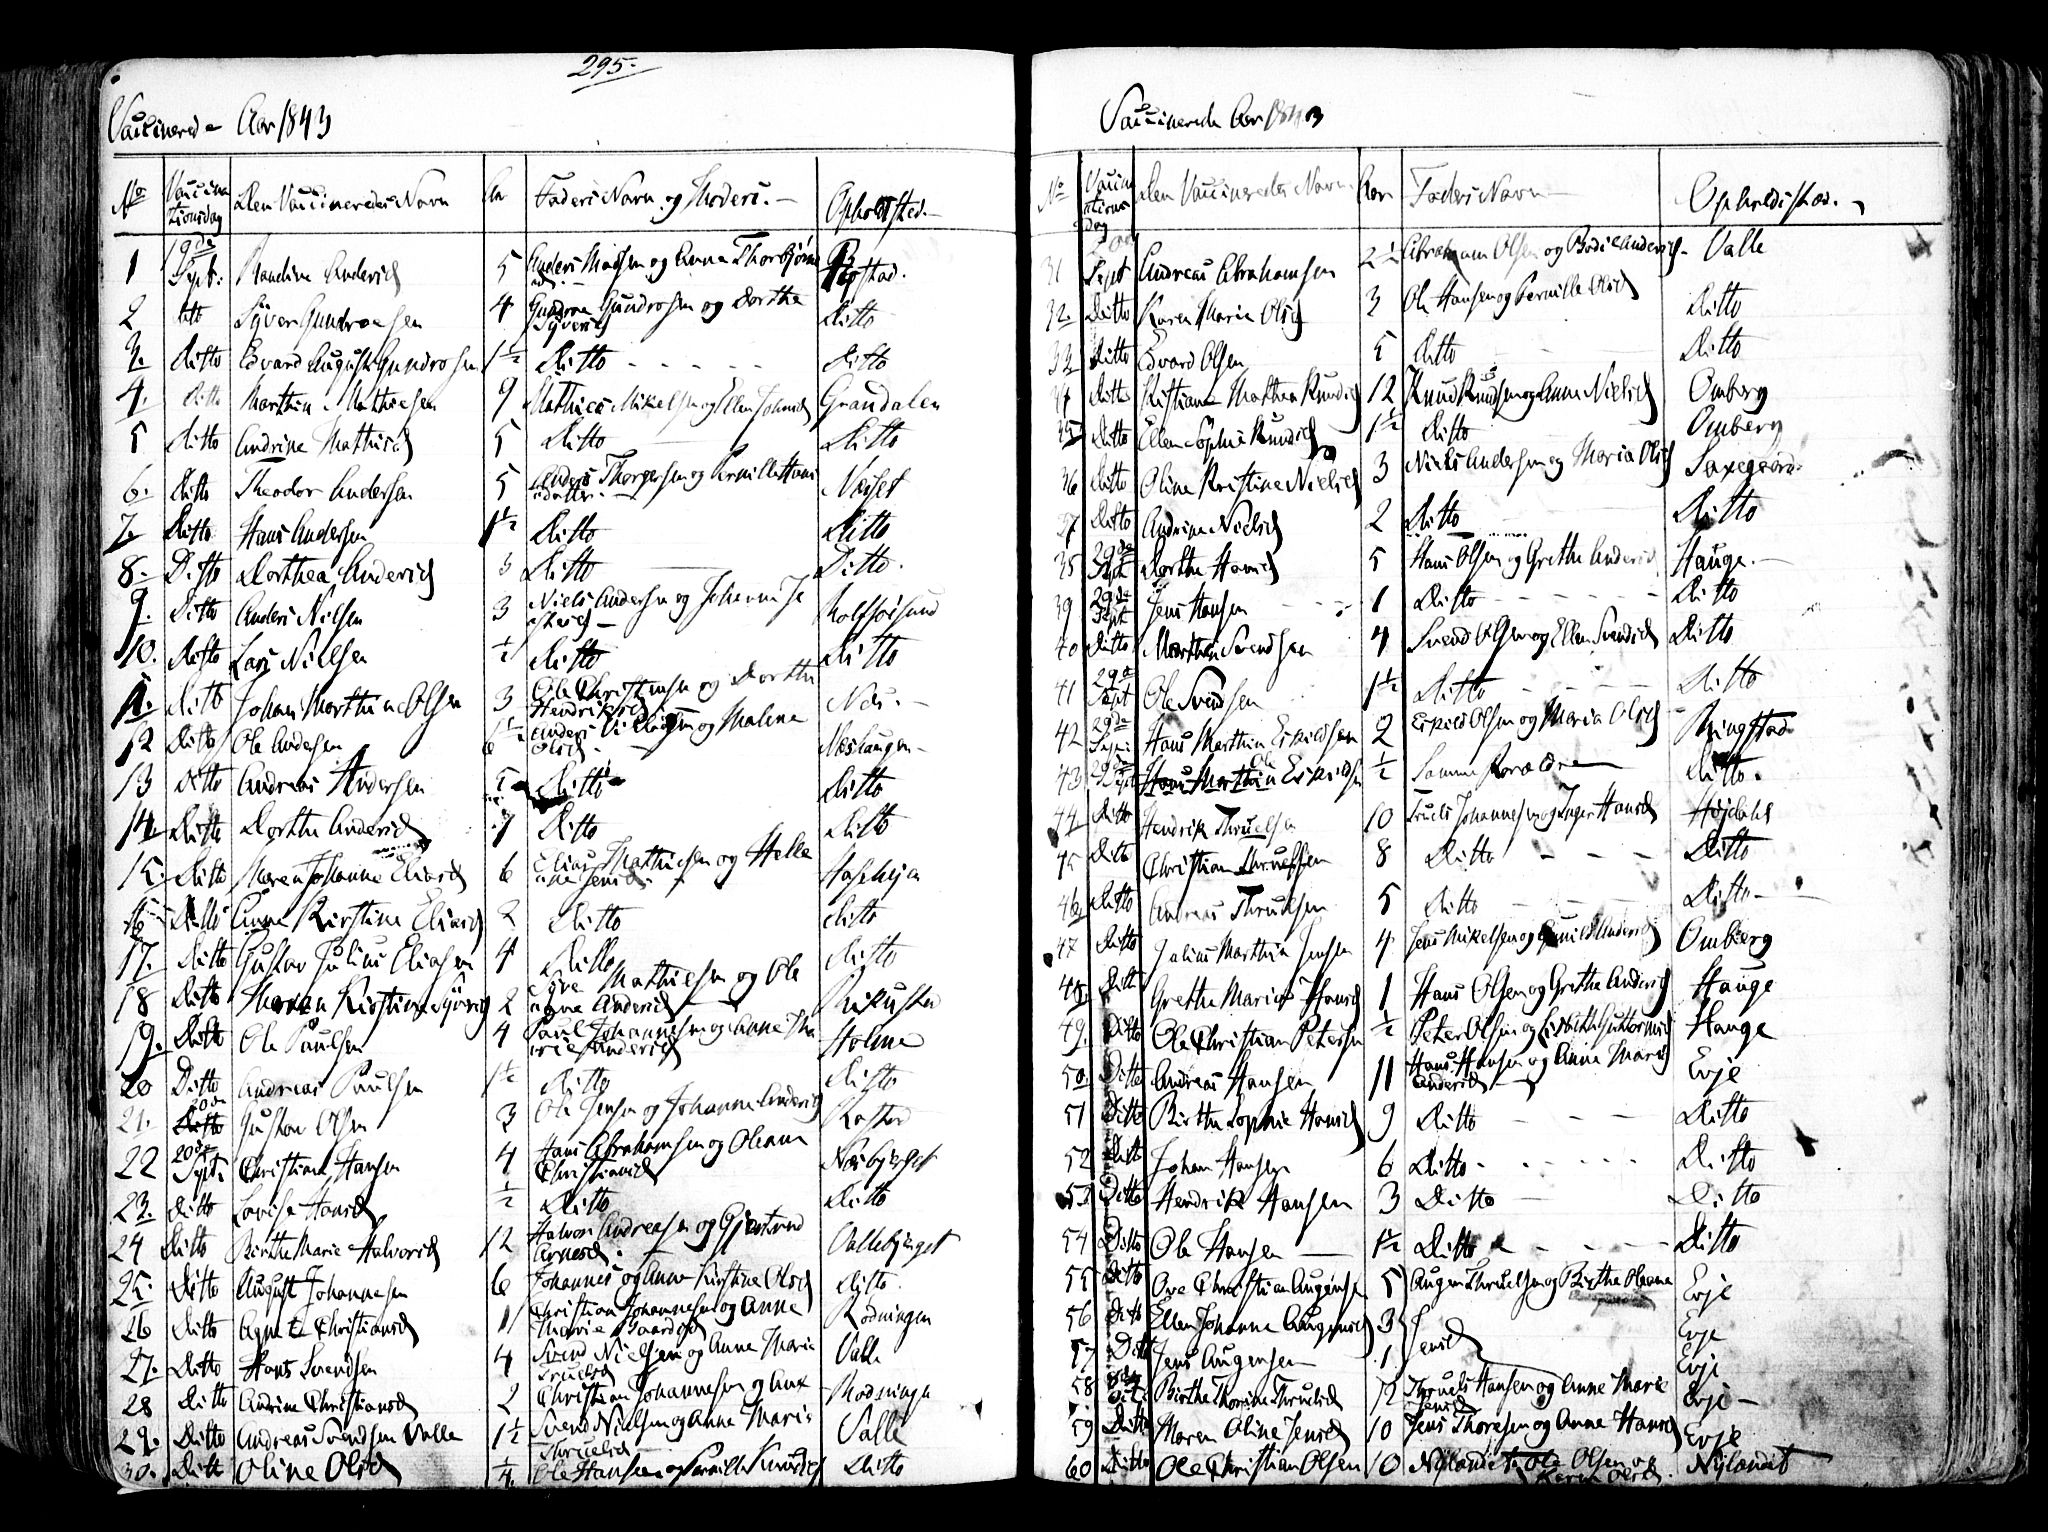 295.
Vaccinerede Aar 1843
No Vaccinationsdag Den Vaccineredes Navn Aar Faders Navn og Moders. Opholdsted.
1 19de Sept: Randine Andersd 5 Anders Madsen og Anna Thorbjørnsd.
2 Ditto Syver Gundrosen 4 Gundroe Gundrosen og Dorthe Syversd Ditto
3. Ditto Edvard August Gundrosen 1½ Ditto Ditto
4. Ditto Marthin Mathiesen 9 Mathies Mikelsen og Ellen Johnsd Grandalen
5 Ditto Andrine Mathisd 5 Ditto Ditto
6. Ditto Theodor Andersen 5 Anders Thorgersen og Pernille Hansdatter Næsset
7. Ditto Hans Andersen 1½ Ditto Ditto
8. Ditto Dorthea Andersd 3 Ditto Ditto.
9. Ditto Anders Nilsen 3 Niels Andersen og Johanne Jespersd Rolfsøisund
10. Ditto Lars Nielsen ½ Ditto Ditto
11. Ditto Johan Marthin Olsen 3 Ole Christensen og Dorthe Hendriksd Nes.
12 Ditto Ole Andersen Anders og Malene Olsd Neslangen
13 Ditto Andreas Andersen 5 Ditto Ditto
14. Ditto Dorthe Andersd Ditto Ditto
15. Ditto Maren Johanne Eliasd 6 Elias Mathiesen og Hellene Jensd
16 Ditto Anne Kirstine Eliasd 2 Ditto Ditto
17. Ditto Gustav Julius Eliasen 4 Ditto Ditto
18 Ditto Maren Kirstine Syversd 2 Syve Mathiesen og Oleane Andersd
19. Ditto Ole Paulsen 4 Paul Johannesen og Anne Marie Andersd Holme
20 Ditto Andreas Paulsen 1½ Ditto Ditto
21. 20de Gustav Olsen 3 Ole Jensen og Johanne Andersd
22 20de Sept: Christian Hansen 4 Hans Abrahamsen og Oleane Christiansd Næsbyeiet
23. Ditto Lovise Hansd ½ Ditto Ditto
24 Ditto Birthe Marie Halvorsd 12 Halvor Andreasen og Gjertrud Arnesd. Vallebyeiet
25. Ditto August Johannesen 6 Johannes og Anne Kirstine Olsd Ditto.
26 Ditto Agnete Christiansd Christian Johannesen og Anne Marie Rødningen
27. Ditto Hans Svendsen 4 Svend Nielsen og Anne Marie Truelsd Valle
28 Ditto Andrine Christiansd 2 Christian Johannesen og Anne
29. Ditto Andreas Svendsen Valle 1½ Svend Nielsen og Anne Marie Thruelsd Valle
30. Ditto Oline Olsd ¼ Ole Hansen og Pernille Knudsd Ditto
Vaccinerede Aar 1843
No Vaccinationsdag Den Vaccineredes Navn Aar Faders Navn Opholdssted.
31 Sept Andreas Abrahamsen 2½ Abraham Olsen og Bodil Andersd Valle
32. Ditto Karen Maria Olsd 3 Ole Hansen og Pernille Olsd Ditto
33 Ditto Edvard Olsen 5 Ditto Ditto
34 Ditto Kistiane Mathea Knudsd 12 Knud Knudsen og Anne Nielsd Omberg
35 Ditto Ellen Sophie Knudsd 1½ Ditto Omberg
36 Ditto Oline Kristine Nielsd 3 Niels Andersen og Maria Olsd Saxegaard
37 Ditto Andrine Nielsd 2 Ditto Ditto
38 29de Sept Dorthe Hansd 5 Hans Olsen og Grethe Andersd Hauge.
39 29de Sept Jens Hansen 1 Ditto Ditto
40 Ditto Marthin Svendsen 4 Svend Olsen og Ellen Svendsd Ditto
41 29de Sept Ole Svendsen 1½ Ditto Ditto
42 29de Sept: Hans Marthin Eskildsen 2 Eskild Olsen og Maria Olsd Ringstad
43 29de Sept Hans Marthin Ole Eskildsen ½ Samme Foræ Ditto.
44 Ditto Hendrik Thruelsen 10 Truels Johannesen og Inger Hansd
45 Ditto Christian Thruelsen 8 Ditto Ditto
46 Ditto Andreas Thruelsen 5 Ditto Ditto
47 Ditto Julius Marthin Jensen 4 Jens Mikelsen og Gunild Andersd Omberg
48. Ditto Grethe Marie Hansd 1 Hans Olsen og Grethe Andersd Hauge
49. Ditto Ole Christian Petersen ½ Peter Olsen og Lisbeth Guttormsd Hauge
50. Ditto Andreas Hansen 11 Hans Hansen og Anne Marie Andersd Evje
51 Ditto Birthe Sophie Hansd 9 Ditto Ditto
52 Ditt Johan Hansen 6 Ditto Ditto
53 Ditto Hendrik Hansen 3 Ditto Ditto
54 Ditto Ole Hansen 1½ Ditto Ditto
55 Ditto Ove Christian Augensen 5 Augen Thruelsen og Birthe Oleane Evje
56 Ditto Ellen Johanne Augensd 3 Jensd Evje
57 Ditt Jens Augensen 1 Evje
58 Birthe Thorine Thruelsd 12 Thruels Hansen og Anne Marie Jensd Evje
59 Ditto Maren Oline Jensd 10 Jens Thoresen og Anne Hansd Evje
60 Ditto Ole Christian Olsen 10 Ole Olsen og Karen Olsd. Nylandet